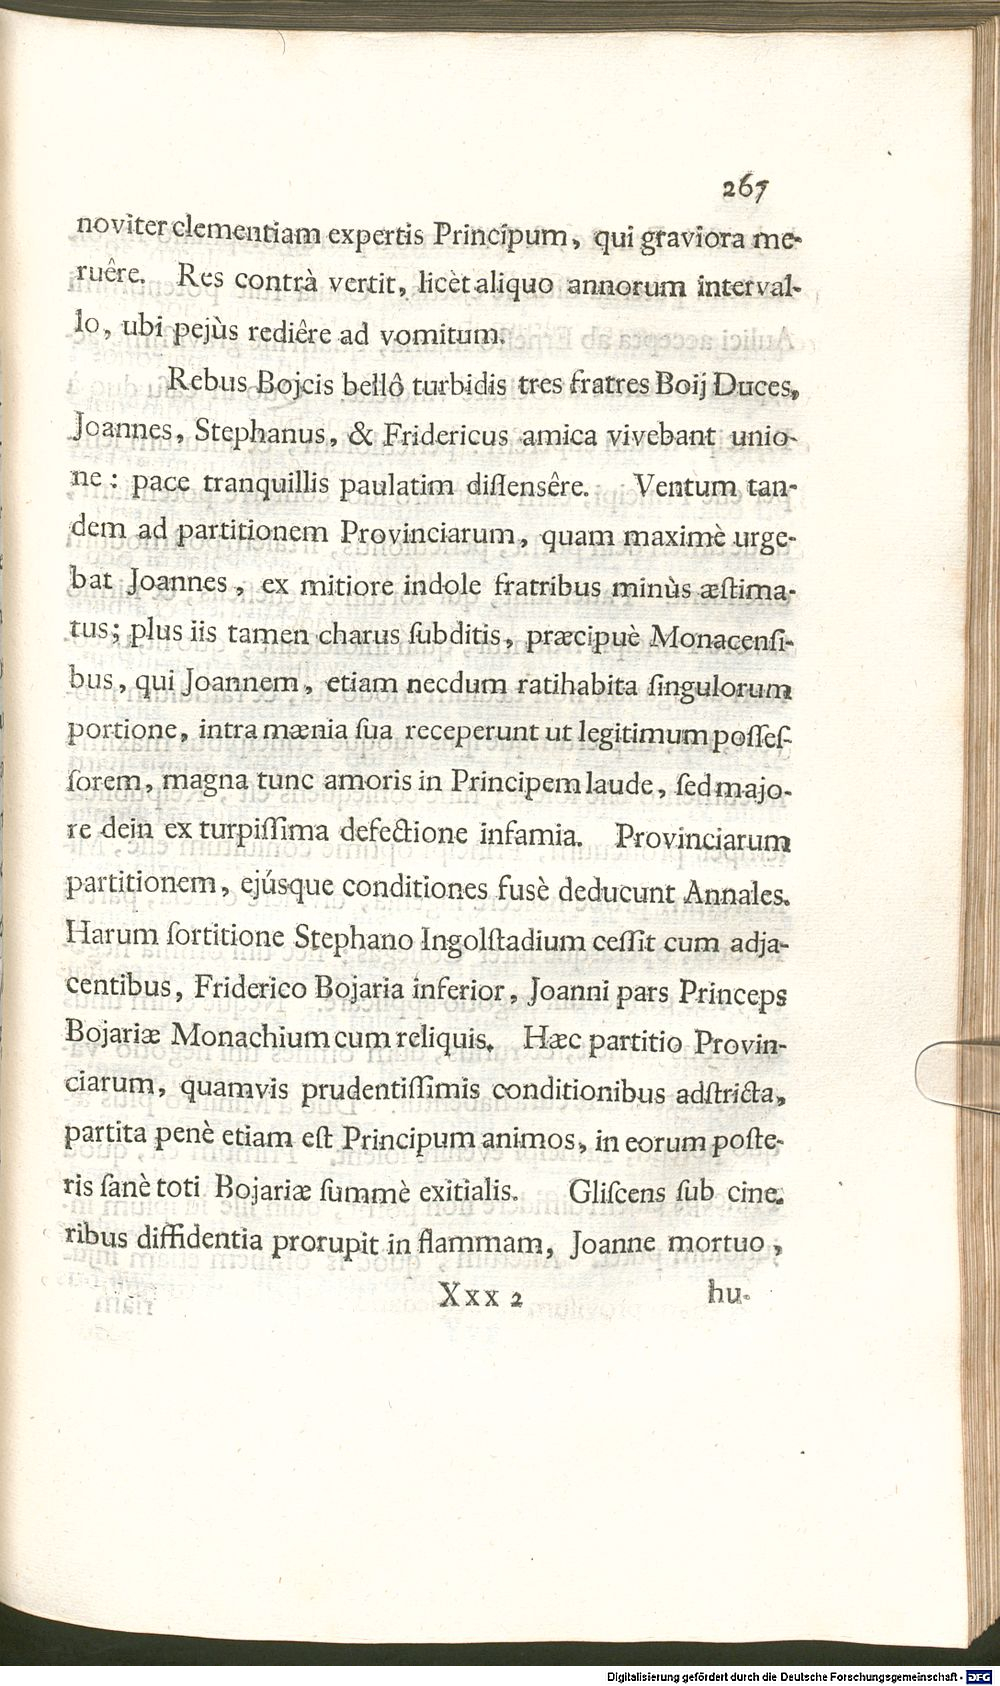 267
noviter clementiam expertis Principum, qui graviora me-
ruêre. Res contrà vertit, licèt aliquo annorum interval-
lo, ubi pejùs rediêre ad vomitum.
Rebus Bojcis bellô turbidis tres fratres Boij Duces,
Joannes, Stephanus, & Fridericus amica vivebant unio-
ne: pace tranquillis paulatim diſſensêre. Ventum tan-
dem ad partitionem Provinciarum, quam maximè urge-
bat Joannes, ex mitiore indole fratribus minùs æſtima-
tus; plus iis tamen charus ſubditis, præcipuè Monacenſi-
bus, qui Joannem, etiam necdum ratihabita ſingulorum
portione, intra mænia ſua receperunt ut legitimum poſſeſ-
ſorem, magna tunc amoris in Principem laude, ſed majo-
re dein ex turpiſſima defectione infamia. Provinciarum
partitionem, ejúsque conditiones fusè deducunt Annales.
Harum ſortitione Stephano Ingolſtadium ceſſit cum adja-
centibus, Friderico Bojaria inferior, Joanni pars Princeps
Bojariæ Monachium cum reliquis. Hæc partitio Provin-
ciarum, quamvis prudentiſſimis conditionibus adſtricta,
partita penè etiam eſt Principum animos, in eorum poſte-
ris ſanè toti Bojariæ ſummè exitialis. Gliſcens ſub cine-
ribus diffidentia prorupit in flammam, Joanne mortuo,
Xxx 2 hu-
Digitalisierung gefördert durch die Deutsche Forschungsgemeinschaft - DFG